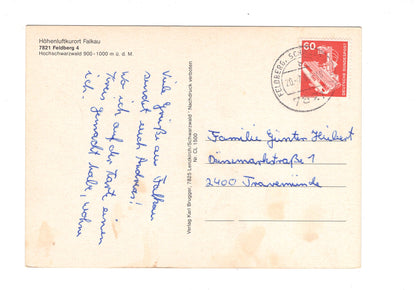 Höhenluftkurort Falkau
7821 Feldberg 4
Hochschwarzwald 900 - 1000 m ü. d. M.
Viele Grüße aus Falkau
sendet euch Andreas!
Wo ich auf der Kart einen
Kreis gemacht habe, wohne
ich.
Verlag Karl Brugger, 7825 Lenzkirch/Schwarzwald · Nachdruck verboten
Nr. CL 1080
FELDBERG, SCH
60
Familie Günter Heibert
Dünemarkstraße 1
2400 Travemünde